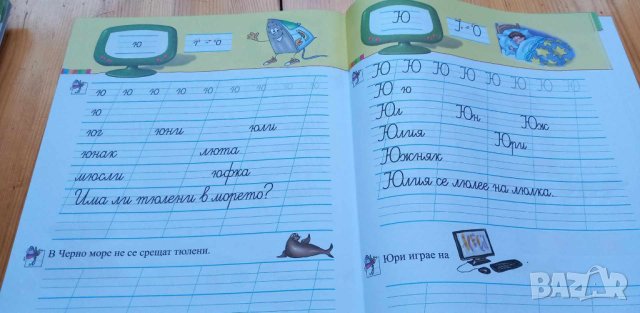 ю
ю ю ю ю ю ю ю ю ю
ю
юг юни юли
юнак люта
мюсли юфка
Има ли тюлени в морето?
В Черно море не се срещат тюлени.
Ю
Ю Ю Ю Ю Ю Ю Ю Ю
Ю ю
Юл Юн Юж
Юлия Юри
Южняк
Юлия се люлее на люлка.
Юри играе на
BAZAR
bg